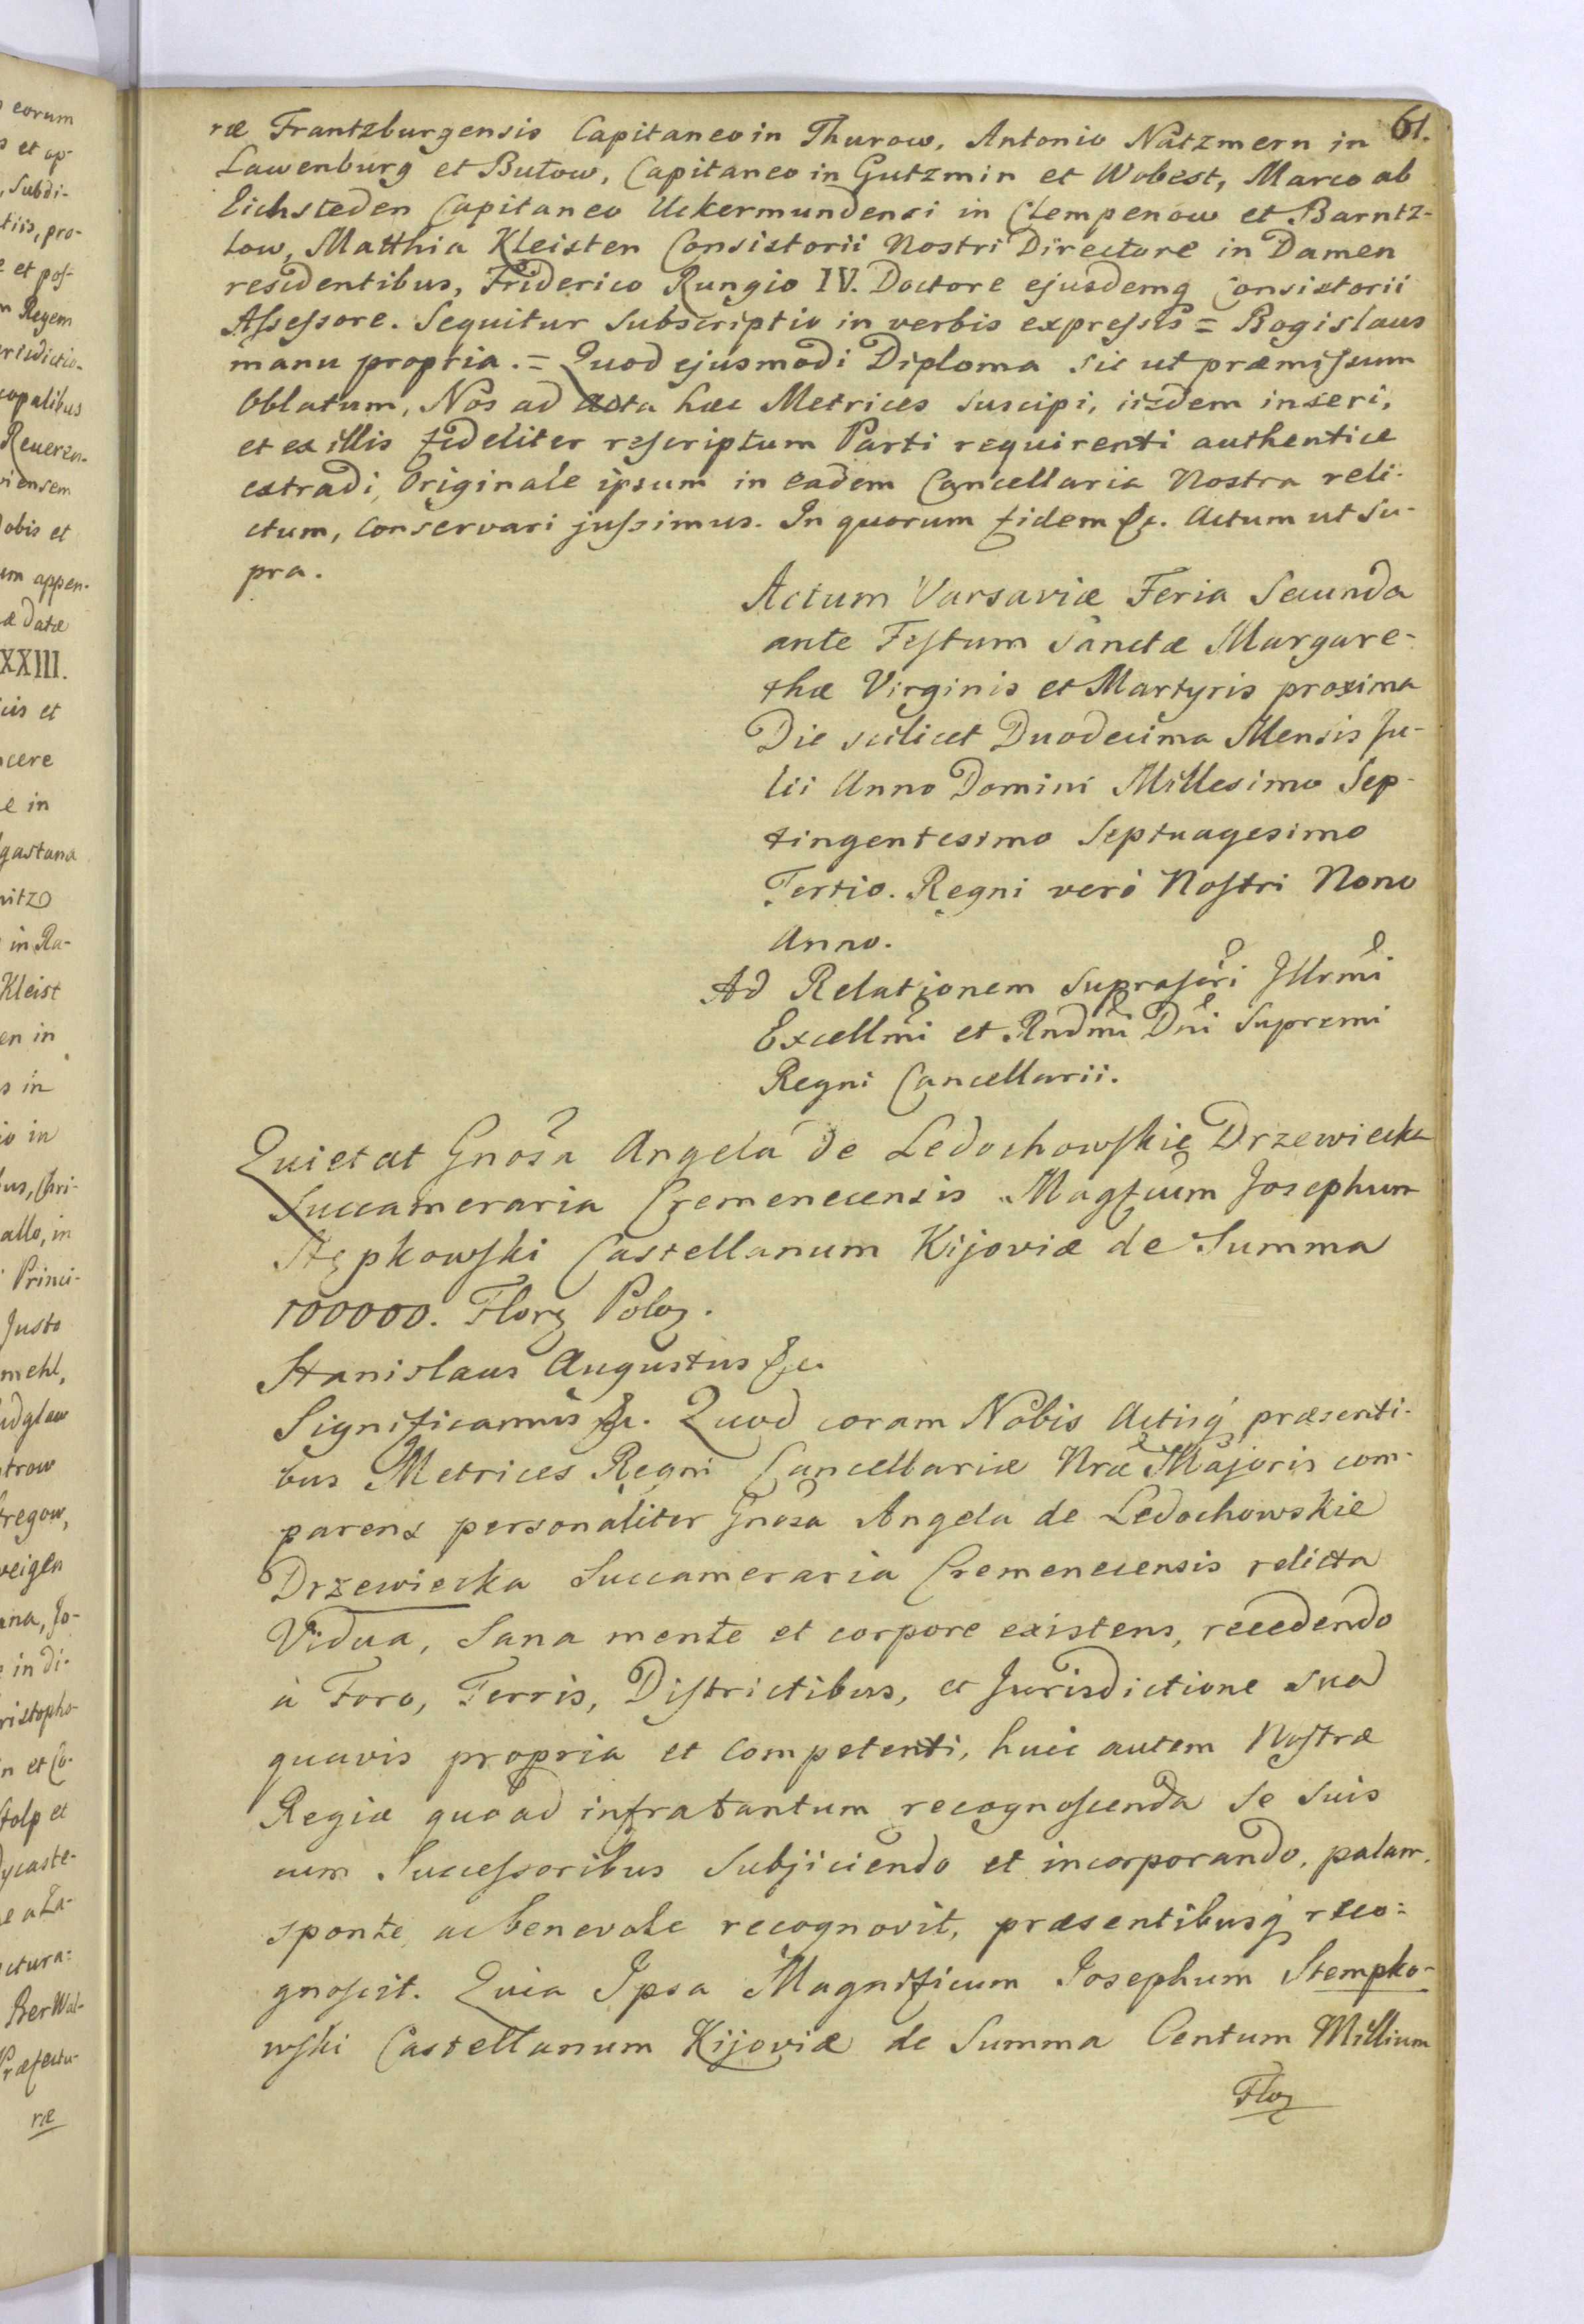 61.
ræ Frantzburgensis Capitaneo in Thurow, Antonio Natzmern in
Lawenburg et Butow, Capitaneo in Gutzmin et Wobest, Marco ab
Eichsteden Capitaneo Uckermundensi in Clempenow et Barntz-
low, Matthia Kleisten Consistorii Nostri Directore in Damen
residentibus, Friderico Rungio IV. Doctore ejusdemq Consistorii
Assessore. Sequitur Subscriptio in verbis expressis = Bogislaus
manu propria. = Quod ejusmodi Diploma sic ut præmissum
Oblatum, Nos ad Acta hæc Metrices suscipi, iisdem inseri,
et ex illis fideliter rescriptum Parti requirenti authentice
extradi, Originale ipsum in eadem Cancellaria Nostra reli-
ctum, conservari jussimus. In quorum fidem &c. Actum ut Su-
pra.
Actum Varsaviæ Feria Secunda
ante Festum Sanctæ Margare-
thæ Virginis et Martyris proxima
Die scilicet Duodecima Mensis Ju-
lii Anno Domini Millesimo Sep-
tingentesimo Septuagesimo
Tertio. Regni verò Nostri Nono
Anno.
Ad Relationem suprascri Illrmi
Excellmi et Rndmi Dni Supremi
Regni Cancellarii.
Quietat Gnosa Angela de Ledochowskie Drzewiecka
Succameraria Cremenecensis Magfcum Josephum
Stępkowski Castellanum Kijoviæ de Summa
100000. Florz Poloz.
Stanislaus Augustus &c.
Significamus &c. Quod coram Nobis Actisq præsenti-
bus Metrices Regni Cancellariæ Nræ Majoris com-
parens personaliter Gnosa Angela de Ledochowskie
Drzewiecka Succameraria Cremenecensis relicta
Vidua, Sana mente et corpore existens, recedendo
à Foro, Terris, Districtibus, et Jurisdictione sua
quavis propria et competenti, huic autem Nostræ
Regiæ quoad infra tantum recognoscenda se suis
cum Successoribus Subjiciendo et incorporando, palam,
sponte, ac benevole recognovit, præsentibusq reco=
gnoscit. Quia Ipsa Magnificum Josephum Stempko-
wski Castellanum Kijoviæ de Summa Centum Millium
Floz
eorum
et op-
Subdi-
tiis, pro-
et pos-
Regem
copalibus
Reveren-
viensem
obis et
appen-
datæ
XXIII.
et
cere
in
gastana
nitz
in Ra-
Kleist
en in
in
in
bus, Chri-
allo, in
Princi-
Justo
mehl,
udglaw
trow
regow,
veigen
ana, Jo-
in di-
ristopho-
n et Co-
Stolp et
dycaste-
a Za-
ctura:
BerWal-
Præfectu-
ræ